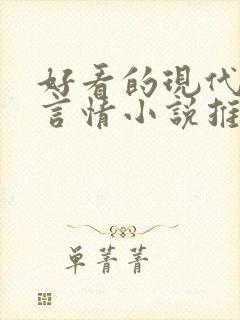 好看的現代
言情小說推
单菁菁